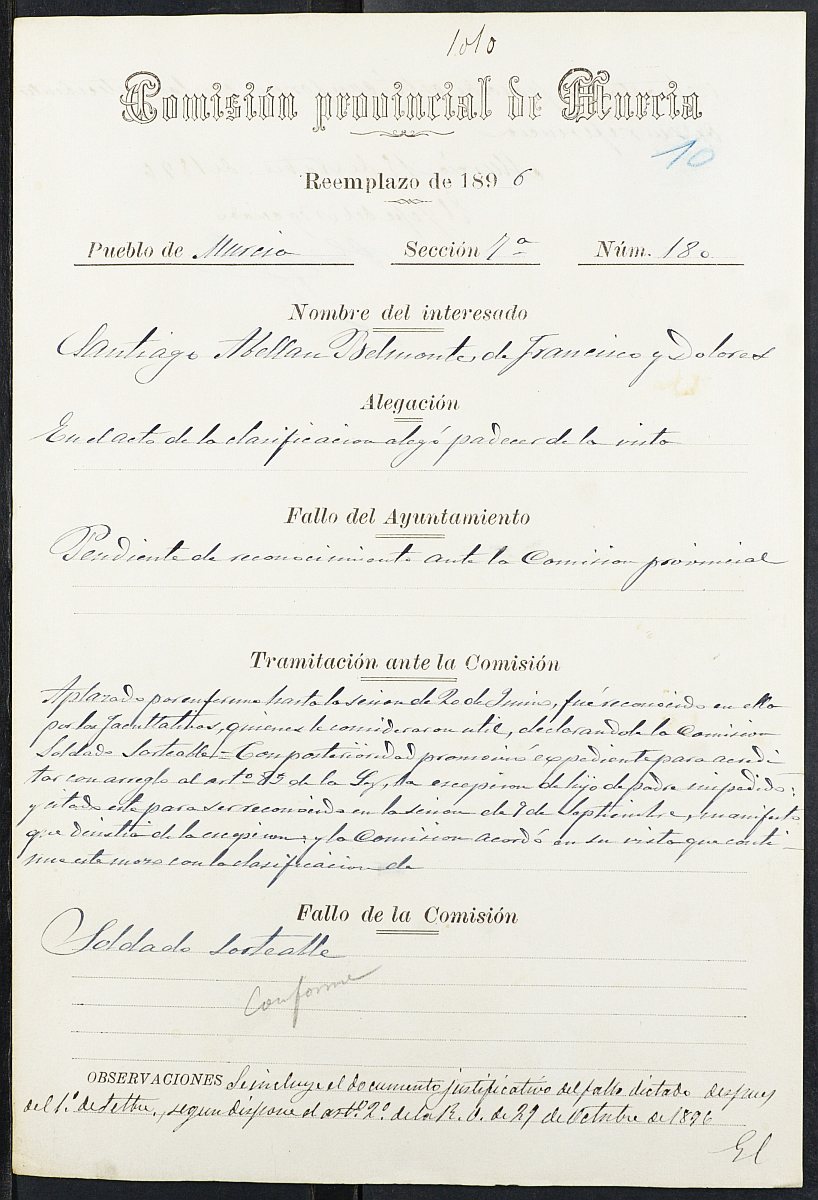 1010
Comisión provincial de Murcia
10
Reemplazo de 1896
Pueblo de Murcia Sección 7ª Núm. 180
Nombre del interesado
Santiago Abellan Belmonte, de Francisco y Dolores
Alegación
En el acto de la clasificacion alegó padecer de la vista
Fallo del Ayuntamiento
Pendiente de reconocimiento ante la Comision provincial
Tramitación ante la Comisión
Aplazado por enfermo hasta la sesion de 20 de Junio, fué reconocido en ella
por los facultativos, quienes le consideraron util, declarandole la Comision
Soldado Sorteable = Con posterioridad promovió expediente para acredi
tar con arreglo al artº 85 de la Ley, la excepcion de hijo de padre impedido;
y citado este para ser reconocido en la sesion de 9 de Septiembre, manifestó
que desistia de la excepcion: y la Comision acordó en su vista que conti-
nue este mozo con la clasificacion de
Fallo de la Comisión
Soldado Sorteable
Conforme
OBSERVACIONES Se incluye el documento justificativo del fallo dictado despues
del 1º de Setbre, segun dispone el artº 2º de la R. O. de 27 de Octubre de 1896